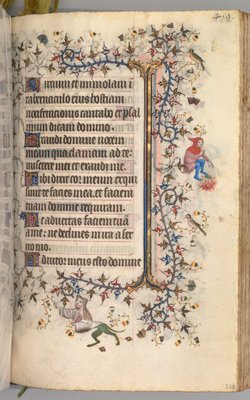 Circuiui et immolaui i
tabernaculo eius hostiam
uociferacionis cantabo et psal
mum dicam domino.
Exaudi domine uocem
meam qua clamaui ad te:
miserere mei et exaudi me.
Tibi dixit cor meum exqui
siuit te facies mea: faciem
tuam domine requiram.
Ne aduertas faciem tuã
a me: ne declines in ira a ser
uo tuo.
Adiutor meus esto domine